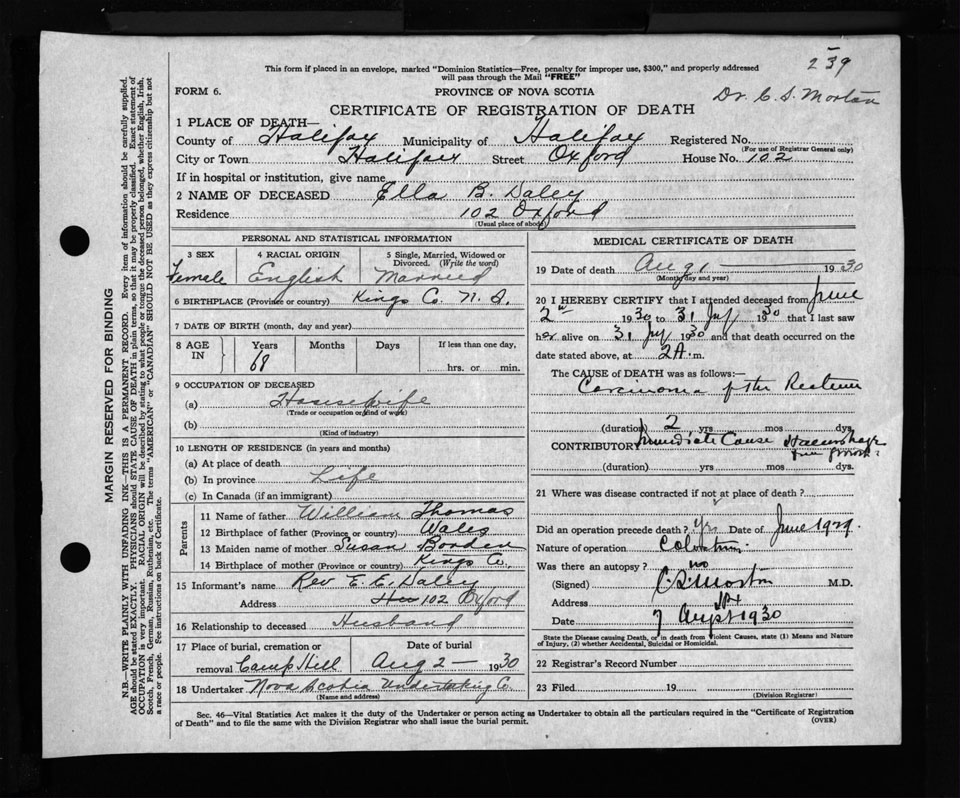 239
This form if placed in an envelope, marked "Dominion Statistics—Free, penalty for improper use, $300," and properly addressed
will pass through the Mail "FREE"
FORM 6.
PROVINCE OF NOVA SCOTIA
Dr. C. S. Morton
CERTIFICATE OF REGISTRATION OF DEATH
1 PLACE OF DEATH—
County of Halifax Municipality of Halifax Registered No.
(For use of Registrar General only)
City or Town Halifax Street Oxford House No. 102
If in hospital or institution, give name
2 NAME OF DECEASED Ella B. Daley
Residence 102 Oxford
(Usual place of abode)
PERSONAL AND STATISTICAL INFORMATION
3 SEX
Female
4 RACIAL ORIGIN
English
5 Single, Married, Widowed or
Divorced. (Write the word)
Married
6 BIRTHPLACE (Province or country) Kings Co. N. S.
7 DATE OF BIRTH (month, day and year)
8 AGE IN
Years Months Days If less than one day,
68
hrs. or min.
9 OCCUPATION OF DECEASED
(a) Housewife
(Trade or occupation or kind of work)
(b)
(Kind of industry)
10 LENGTH OF RESIDENCE (in years and months)
(a) At place of death
(b) In province Life
(c) In Canada (if an immigrant)
Parents
11 Name of father William Thomas
12 Birthplace of father (Province or country) Wales
13 Maiden name of mother Susan Borden
14 Birthplace of mother (Province or country) Kings Co.
15 Informant's name Rev E. E. Daley
Address 102 Oxford
16 Relationship to deceased Husband
17 Place of burial, cremation or Date of burial
removal Camp Hill Aug 2 — 1930
18 Undertaker Nova Scotia Undertaking Co.
(Name and address)
MEDICAL CERTIFICATE OF DEATH
19 Date of death Aug 1 1930
(Month, day and year)
20 I HEREBY CERTIFY that I attended deceased from June
2nd 1930 to 31 July 1930 that I last saw
her alive on 31 July 1930 and that death occurred on the
date stated above, at 2 A. m.
The CAUSE OF DEATH was as follows:—
Carcinoma of the Rectum
(duration) 2 yrs mos dys.
CONTRIBUTORY Immediate Cause Haemorrhage
from
(duration) yrs mos. dys.
21 Where was disease contracted if not at place of death?
Did an operation precede death? Yes Date of June 1929.
Nature of operation
Was there an autopsy? no
(Signed) C. S. Morton M.D.
Address
Date 7 August 1930
State the Disease causing Death, or in death from Violent Causes, state (1) Means and Nature
of Injury, (2) whether Accidental, Suicidal or Homicidal.
22 Registrar's Record Number
23 Filed 19
(Division Registrar)
Sec. 46—Vital Statistics Act makes it the duty of the Undertaker or person acting as Undertaker to obtain all the particulars required in the "Certificate of Registration
of Death" and to file the same with the Division Registrar who shall issue the burial permit.
(OVER)
MARGIN RESERVED FOR BINDING
N.B.—WRITE PLAINLY WITH UNFADING INK—THIS IS A PERMANENT RECORD. Every item of information should be carefully supplied.
AGE should be stated EXACTLY. PHYSICIANS should STATE CAUSE OF DEATH in plain terms, so that it may be properly classified. Exact statement of
OCCUPATION is very important. RACIAL ORIGIN will be described by stating to what people or tongue the deceased person belonged, whether English, Irish,
Scotch, French, German, Russian, Ruthenian, etc. The terms "AMERICAN" or "CANADIAN" SHOULD NOT BE USED as they express citizenship but not
a race or people. See instructions on back of Certificate.